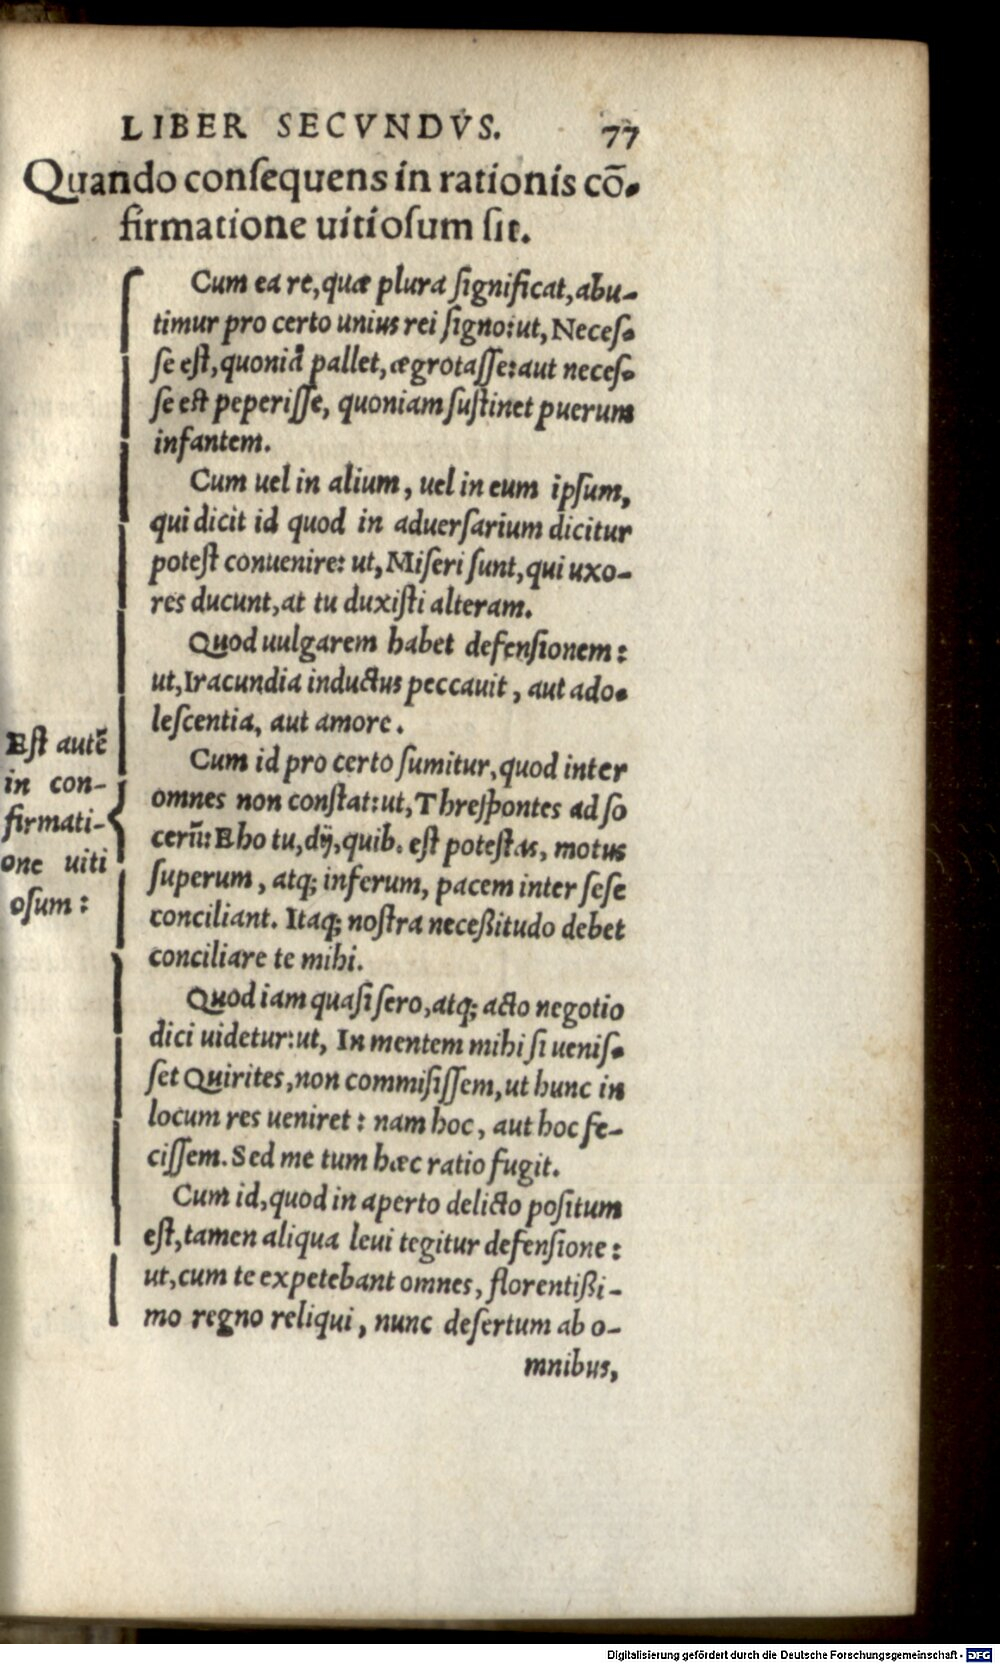 LIBER SECVNDVS. 77
Quando conſequens in rationis cō-
firmatione uitioſum ſit.
Cum ea re, quæ plura ſignificat, abu-
timur pro certo unius rei ſigno: ut, Neceſ-
ſe eſt, quoniā pallet, ægrotaſſe: aut neceſ-
ſe eſt peperiſſe, quoniam ſuſtinet puerum
infantem.
Cum uel in alium, uel in eum ipſum,
qui dicit id quod in aduerſarium dicitur
poteſt conuenire: ut, Miſeri ſunt, qui uxo-
res ducunt, at tu duxiſti alteram.
Quod uulgarem habet defenſionem:
ut, Iracundia inductus peccauit, aut ado-
leſcentia, aut amore.
Cum id pro certo ſumitur, quod inter
omnes non conſtat: ut, Threſpontes ad ſo
cerū: Eho tu, dij, quib. eſt poteſtas, motus
ſuperum, atq; inferum, pacem inter ſeſe
conciliant. Itaq; noſtra neceßitudo debet
conciliare te mihi.
Quod iam quaſi ſero, atq; acto negotio
dici uidetur: ut, In mentem mihi ſi ueniſ-
ſet Quirites, non commiſiſſem, ut hunc in
locum res ueniret: nam hoc, aut hoc fe-
ciſſem. Sed me tum hæc ratio fugit.
Cum id, quod in aperto delicto poſitum
eſt, tamen aliqua leui tegitur defenſione:
ut, cum te expetebant omnes, florentißi-
mo regno reliqui, nunc deſertum ab o-
mnibus,
Eſt autē
in con-
firmati-
one uiti
oſum:
Digitalisierung gefördert durch die Deutsche Forschungsgemeinschaft - DFG